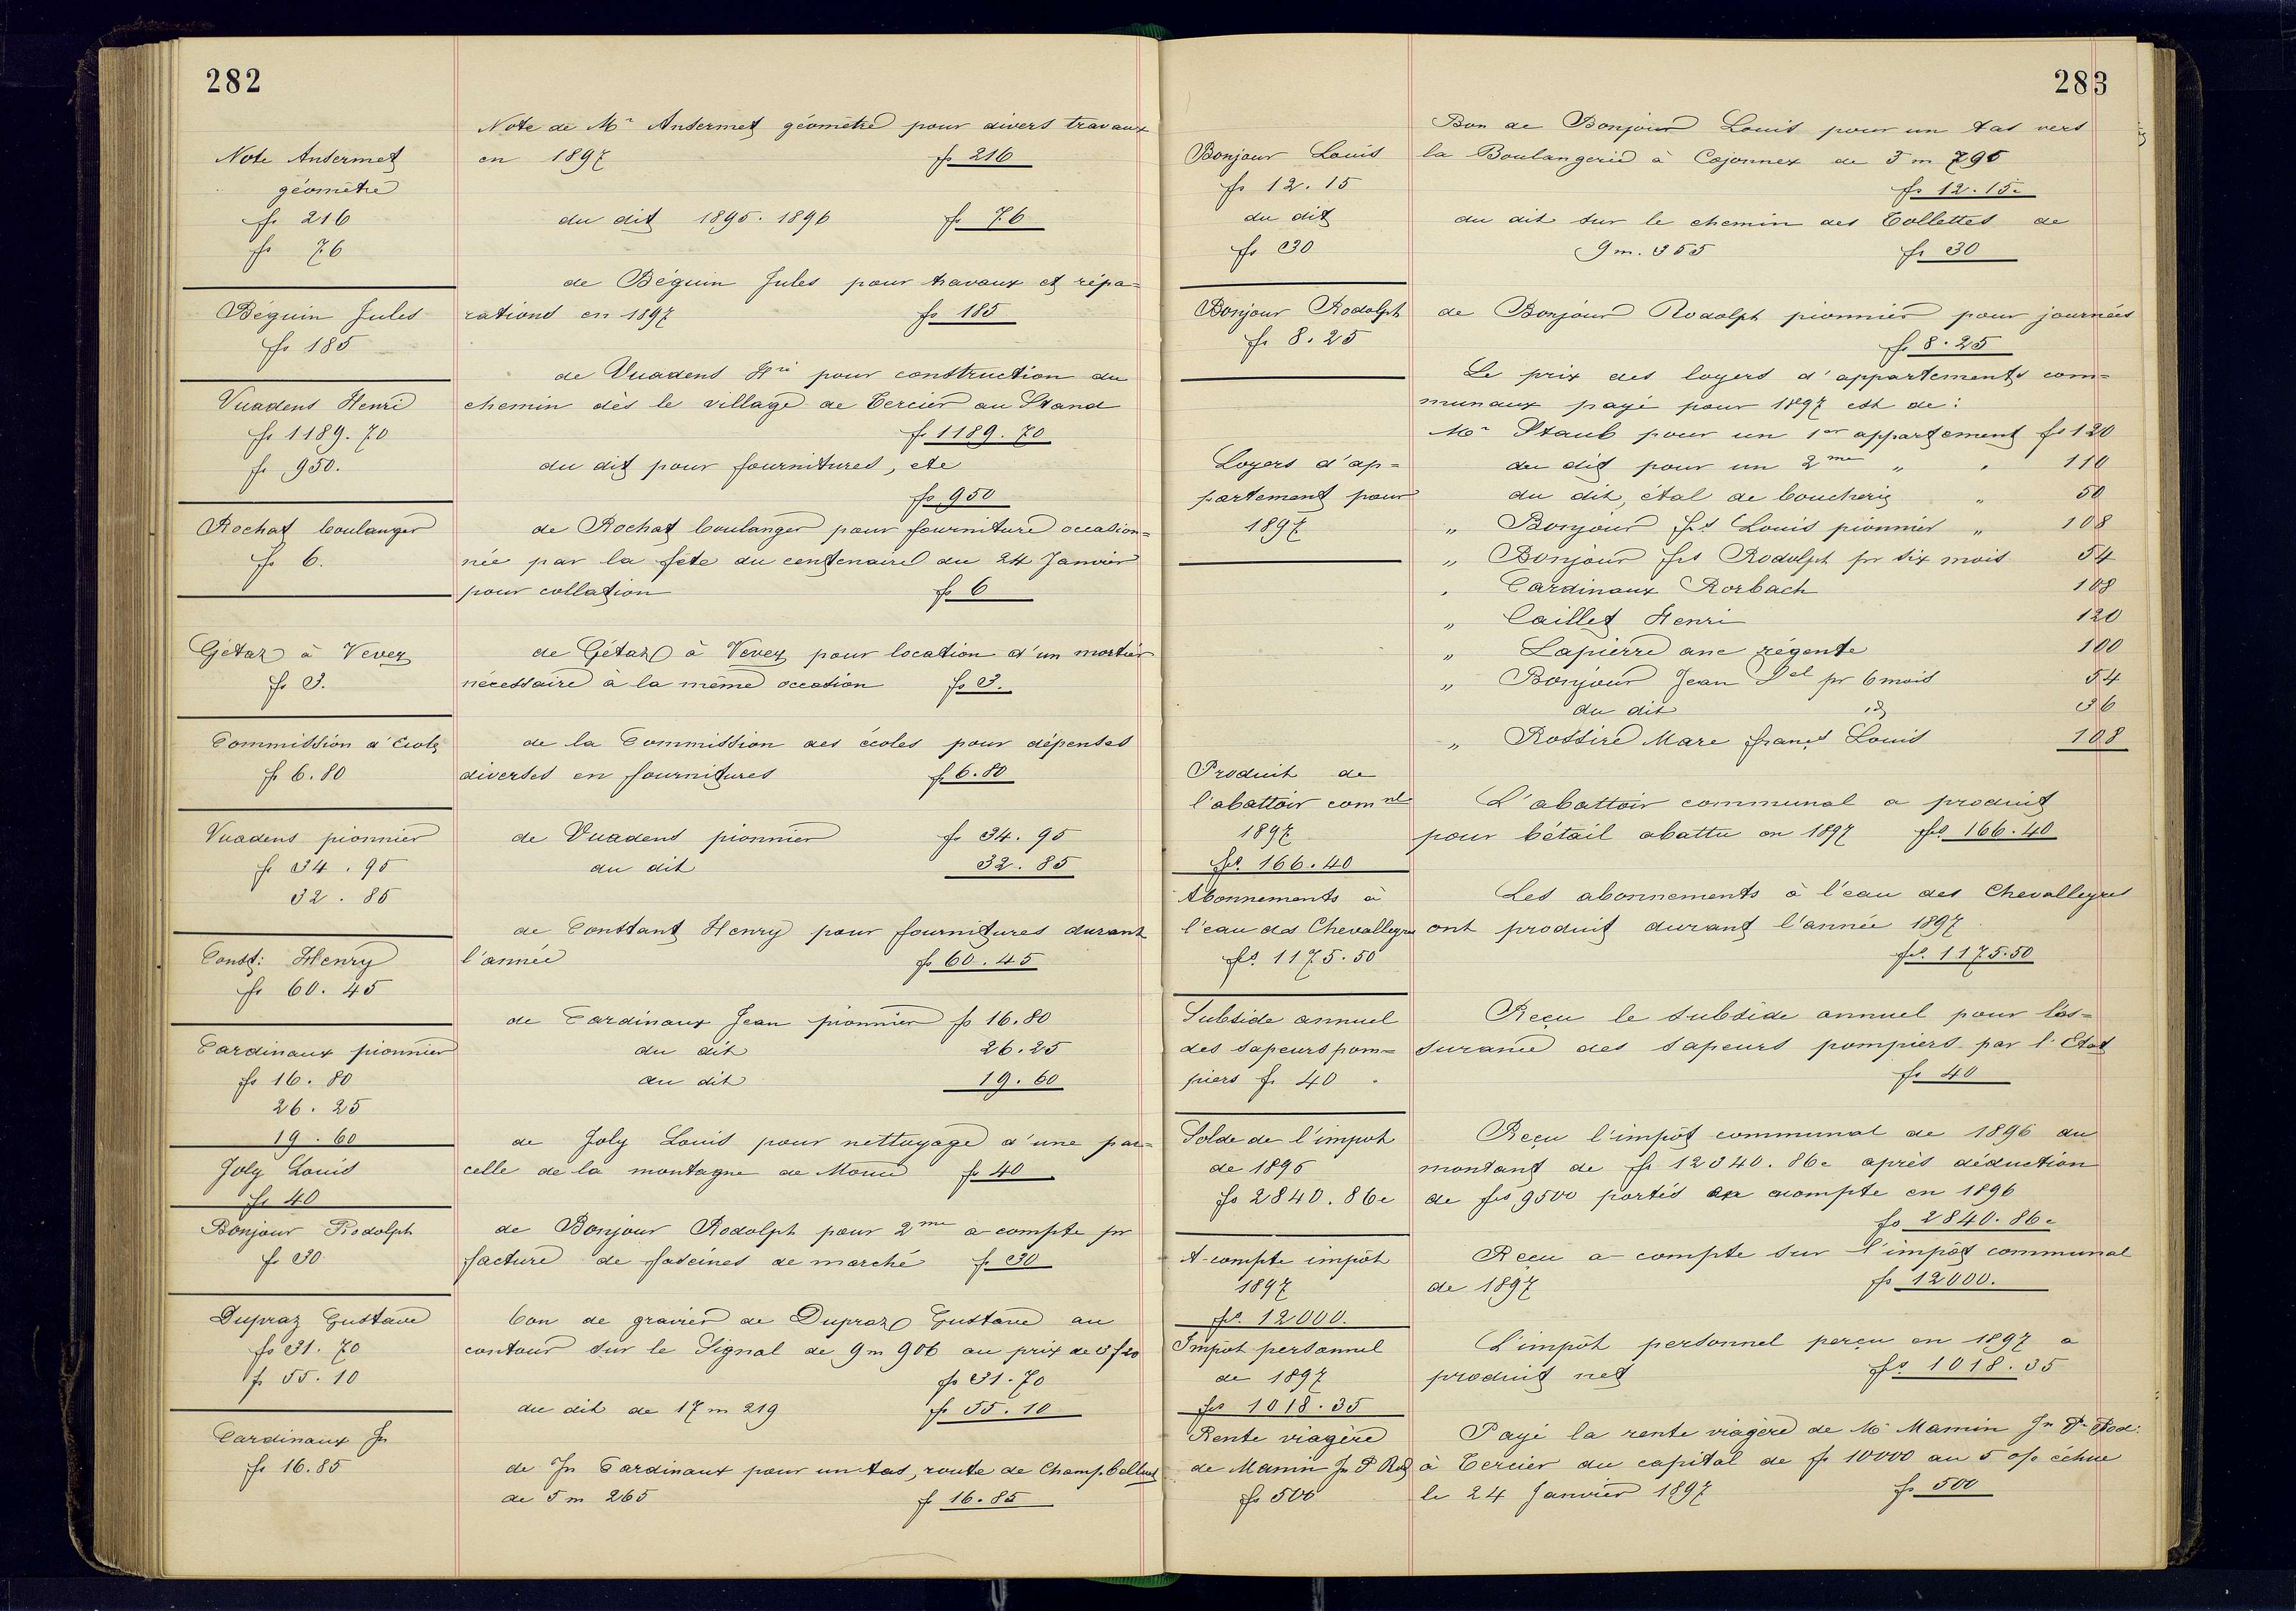 282
Note Ansermet
géomètre
fr 216
fr 76
Béguin Jules
fr 185
Vuadens Henri
fr 1189.70
fr 950.
Rochat boulanger
fr 6.
Gétaz à Vevey
fr 3.
Commission d'école
fr 6.80
Vuadens pionnier
fr 34.95
32.85
Const: Henry
fr 60.45
Cardinaux pionnier
fr 16.80
26.25
19.60
Joly Louis
fr 40
Bonjour Rodolph
fr 30
Dupraz Gustave
fr 31.70
fr 55.10
Cardinaux Jn
fr 16.85
Note de Mr Ansermet géomètre pour divers travaux
en 1897 fr 216
du dit 1895.1896 fr 76
de Béguin Jules pour travaux et répa=
rations en 1897 fr 185
de Vuadens Hri pour construction du
chemin dès le village de Tercier au Stand
fr 1189.70
du dit pour fournitures, etc
fr 950
de Rochat boulanger pour fourniture occasion=
née par la fête du centenaire du 24 Janvier
pour collation fr 6
de Gétaz à Vevey pour location d'un mortier
nécessaire à la même occasion fr 3.
de la Commission des écoles pour dépenses
diverses en fournitures fr 6.80
de Vuadens pionnier fr 34.95
du dit 32.85
de Constant Henry pour fournitures durant
l'année fr 60.45
de Cardinaux Jean pionnier fr 16.80
du dit 26.25
du dit 19.60
de Joly Louis pour nettoyage d'une par=
celle de la montagne de fr 40
de Bonjour Rodolph pour 2me a compte pr
facture de fascines de marché fr 30
bon de gravier de Dupraz Gustave au
contour sur le Signal de 9m 906 au prix de 3f20
fr 31.70
du dit de 17m 219 fr 55.10
de Jn Cardinaux pour un tas, route de Champ belluet
de 5m 265 fr 16.85
283
Bonjour Louis
fr 12.15
du dit
fr 30
Bonjour Rodolph
fr 8.25
Loyers d'ap=
partement pour
1897
Produit de
l'abattoir comnl
1897
frs. 166.40
Abonnements à
l'eau des Chevalleyres
frs. 1175.50
Subside annuel
des sapeurs pom=
piers fr 40
Solde de l'impot
de 1896
fr 2840.86c
A-compte impôt
1897
frs. 12000.
Impôt personnel
de 1897
frs 1018.35
Rente viagère
de Mamin Jn P Rod
fr 500
Bon de Bonjour Louis pour un tas vers
la Boulangerie à Cojonnex de 3m 795
fr 12.15c
du dit sur le chemin des Collettes de
9m.355 fr 30
de Bonjour Rodolph pionnier pour journées
fr 8.25
Le prix des loyers d'appartements com=
munaux payé pour 1897 est de:
Mr Staub pour un 1er appartement frs 120
du dit pour un 2me " " 110
du dit, étal de boucherie " 50
" Bonjour fs Louis pionnier " 108
" Bonjour frs Rodolph pr six mois 54
" Cardinaux Rorbach 108
" Caillet Henri 120
" Lapierre anc régente 100
" Bonjour Jean Del pr 6 mois 54
du dit id 36
" Rossire Marc franç. Louis 108
L'abattoir communal a produit
pour bétail abattu en 1897 frs. 166.40
Les abonnements à l'eau des Chevalleyres
ont produit durant l'année 1897
frs. 1175.50
Reçu le subside annuel pour l'as=
surance des sapeurs pompiers par l'Etat
fr 40
Reçu l'impôt communal de 1896 au
montant de fr 12340.86c après déduction
de frs 9500 portés acompte en 1896
fr 2840.86c
Reçu a-compte sur l'impôt communal
de 1897 fr 12000.
L'impôt personnel perçu en 1897 a
produit net frs. 1018.35
Payé la rente viagère de Mr Mamin Jn P. Rod:
à Tercier du capital de fr 10000 au 5 o/o échue
le 24 Janvier 1897 fr 500